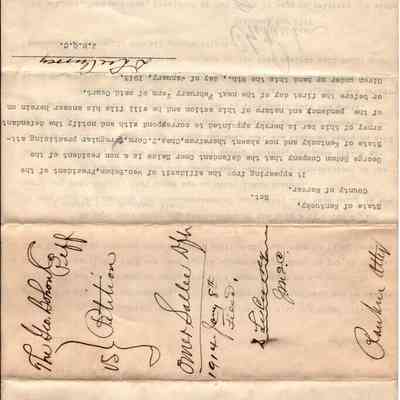 State of Kentucky,
Sct.
County of Mercer.
It appearing from the affidavit of Geo. Bohon, President of the
George Bohon Company that the defendant Omer Sallee is a non resident of the
State of Kentucky and now absent therefrom, Chas. T. Corn, a regular practicing att-
orney of this bar is hereby appointed to correspond with and notify the defendant
of the pendency and nature of this action and he will file his answer herein on
or before the first day of the next February Term of said Court.
Given under my hand this the 8th., day of January, 1915.
J.M.Q.C.
The Geo Bohon Co
Plff
vs Petition
Omer Sallee Dft
1914 Jany 8th
Filed,
J.M.Q.C.
Rankin Atty